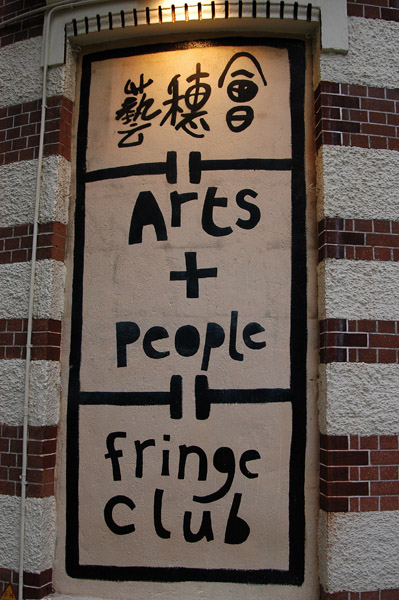 藝穗會
Arts
+
People
fringe
club